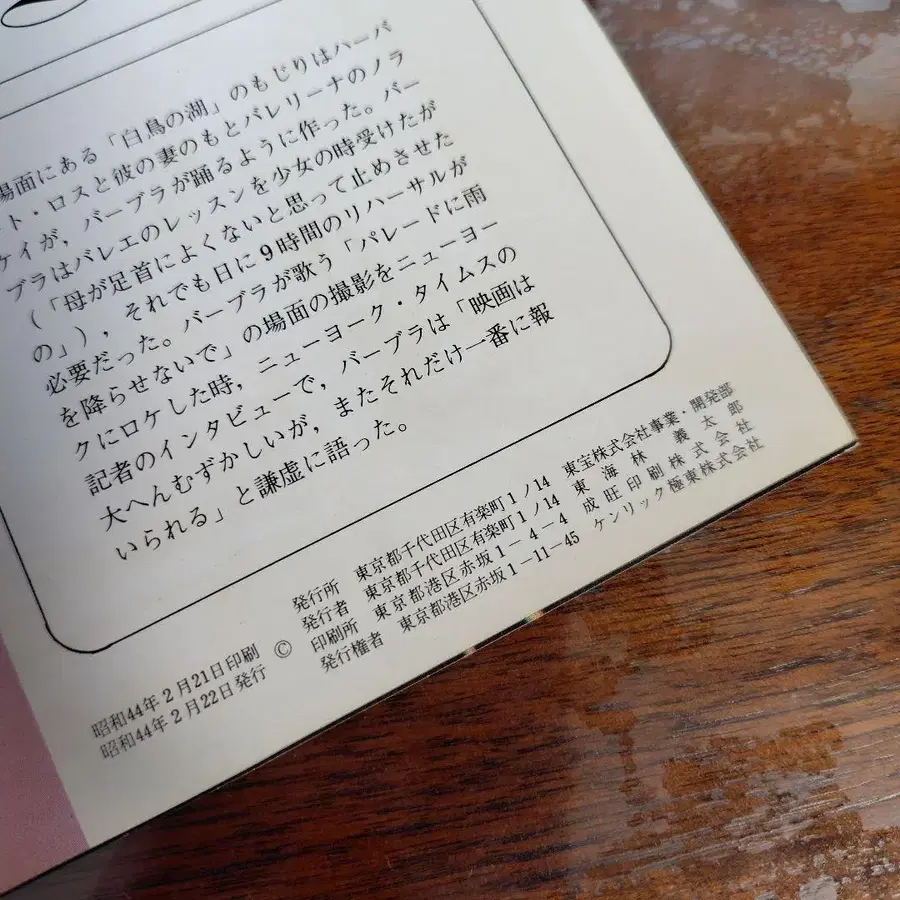 場面にある「白鳥の湖」のもじりはハーバ
ート・ロスと彼の妻のもとバレリーナのノラ
ケイが，バーブラが踊るように作った。バー
ブラはバレエのレッスンを少女の時受けたが
(「母が足首によくないと思って止めさせた
の」)，それでも日に9時間のリハーサルが
必要だった。バーブラが歌う「パレードに雨
を降らせないで」の場面の撮影をニューヨー
クにロケした時，ニューヨーク・タイムスの
記者のインタビューで，バーブラは「映画は
大へんむずかしいが，またそれだけ一番に報
いられる」と謙虚に語った。
昭和44年2月21日印刷
昭和44年2月22日発行
©
発行所 東京都千代田区有楽町1ノ14 東宝株式会社事業・開発部
発行者 東京都千代田区有楽町1ノ14 東海林義太郎
印刷所 東京都港区赤坂1-4-4 成旺印刷株式会社
発行権者 東京都港区赤坂1-11-45 ケンリック極東株式会社